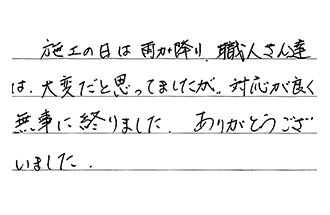 施工の日は雨が降り、職人さん達
は、大変だと思ってましたが、対応が良く
無事に終りました。ありがとうござ
いました。